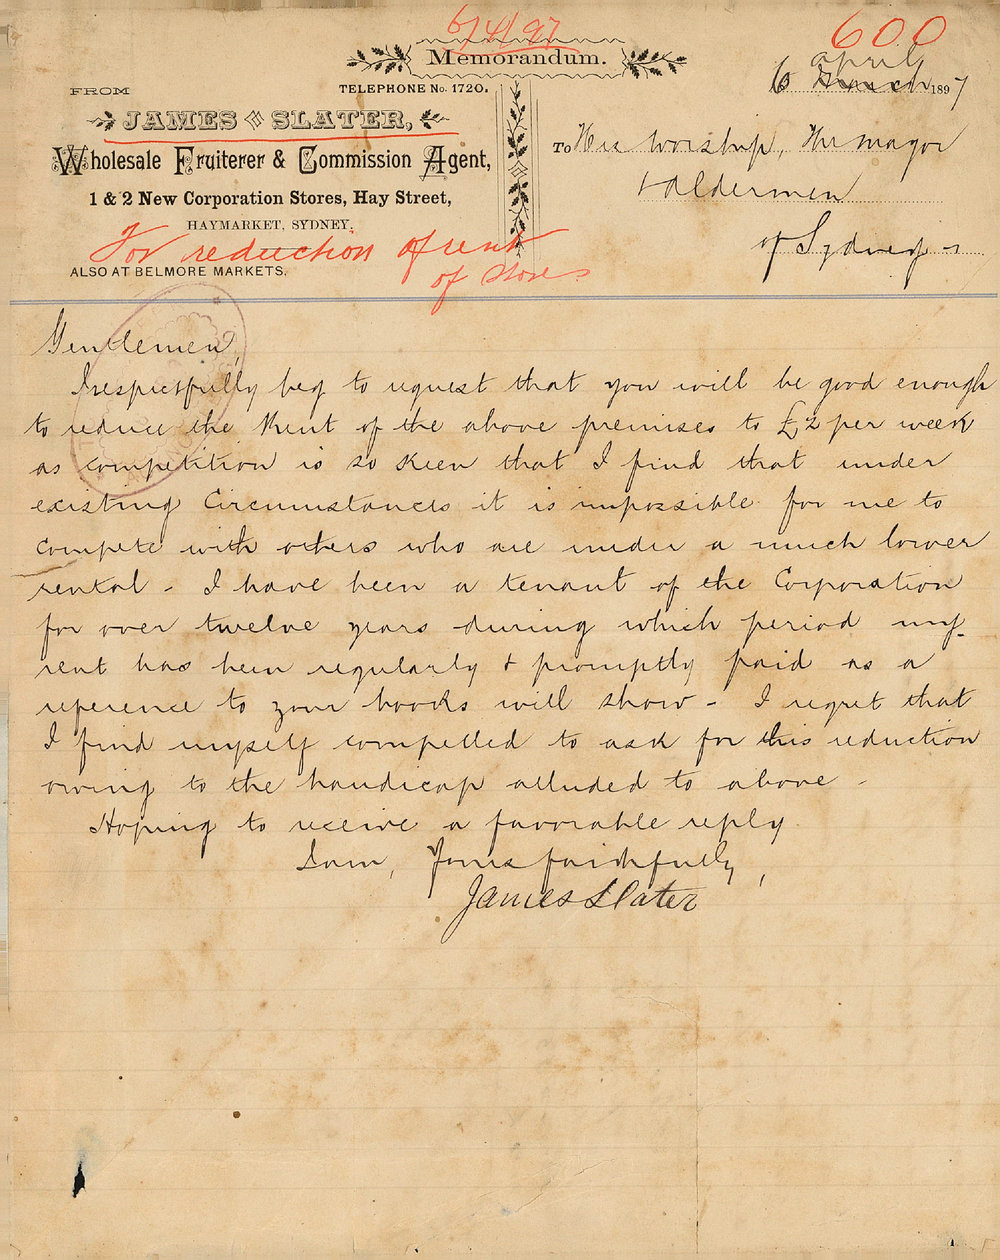 6/4/97
600
Memorandum.
april
6 march 1897
FROM
TELEPHONE No. 1720.
JAMES SLATER,
To His Worship, The Mayor
Wholesale Fruiterer & Commission Agent,
& Aldermen
1 & 2 New Corporation Stores, Hay Street,
HAYMARKET, SYDNEY.
of Sydney -
For reduction of rent
ALSO AT BELMORE MARKETS.
of stores
Gentlemen,
I respectfully beg to request that you will be good enough
to reduce the Rent of the above premises to £2 per week
as competition is so keen that I find that under
existing Circumstances it is impossible for me to
compete with others who are under a much lower
rental - I have been a tenant of the Corporation
for over twelve years during which period my
rent has been regularly & promptly paid as a
reference to your books will show - I regret that
I find myself compelled to ask for this reduction
owing to the handicap alluded to above -
Hoping to receive a favorable reply
I am, Yours faithfully,
James Slater